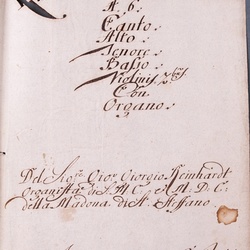 A 6.
Canto
Alto
Tenore
Basso
Violinis 2bus
Con
Organo.
Del Sigre Gior Giorgio Reinhardt
Organista di S. M. C. e M. D. C.
della Madona di St Steffano.